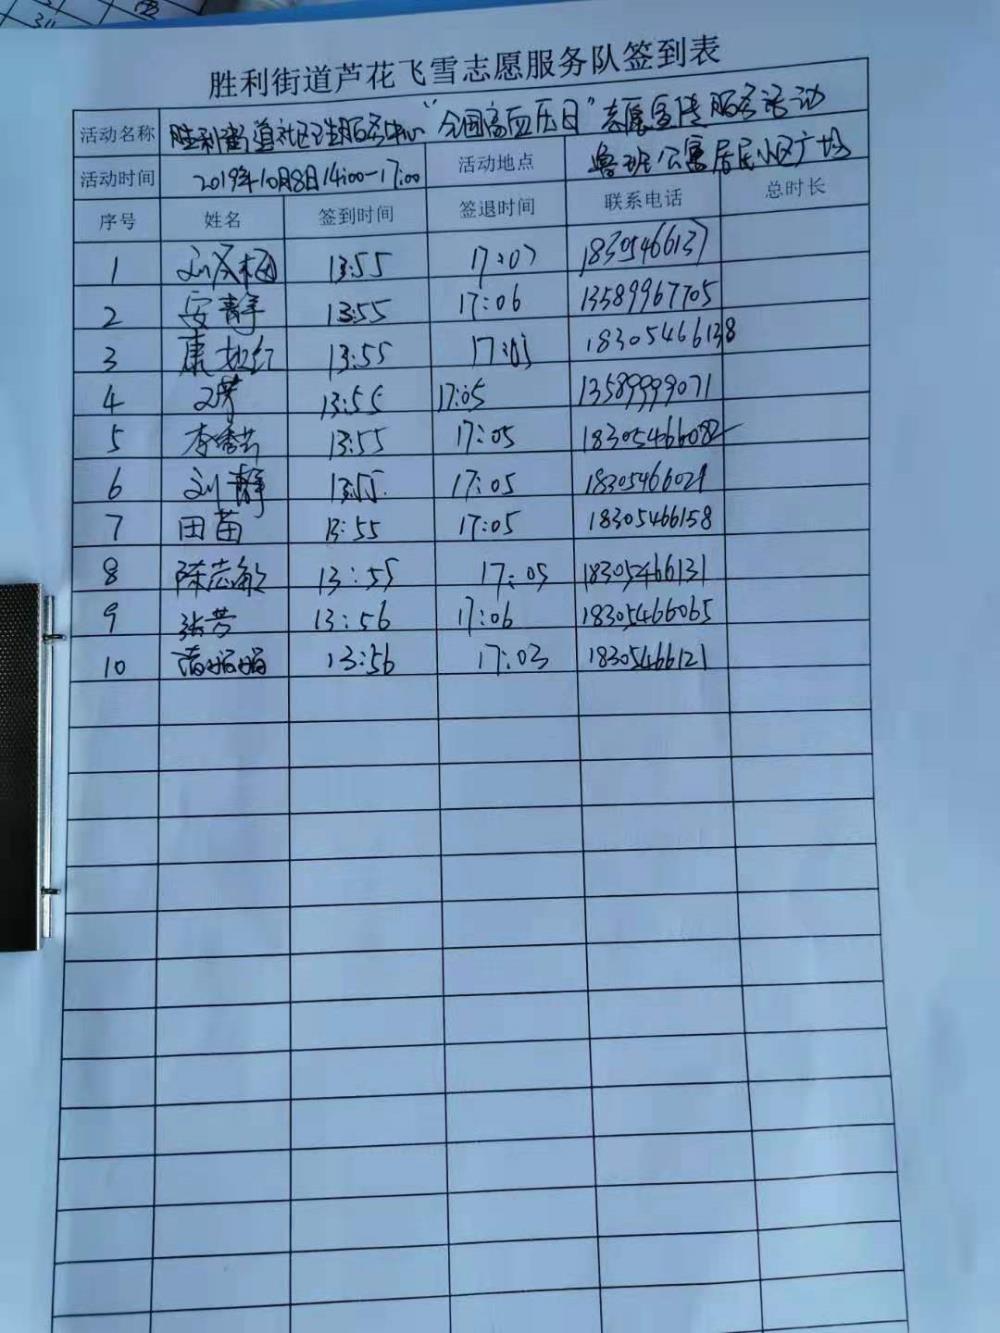 胜利街道芦花飞雪志愿服务队签到表
活动名称 胜利街道社区卫生服务中心"全国高血压日"志愿宣传服务活动
活动时间 2019年10月8日14:00-17:00 活动地点 鲁班公寓居民小区广场
序号 姓名 签到时间 签退时间 联系电话 总时长
1 13:55 17:07 18305466137
2 安静 13:55 17:06 13589967705
3 13:55 18305466138
4 13:55 17:05 13589999071
5 李秀芸 13:55 17:05 18305466082
6 刘静 13:55 17:05 18305466021
7 田苗 13:55 17:05 18305466158
8 陈志敏 13:55 17:05 18305466131
9 张芳 13:56 17:06 18305466065
10 13:56 17:03 18305466121